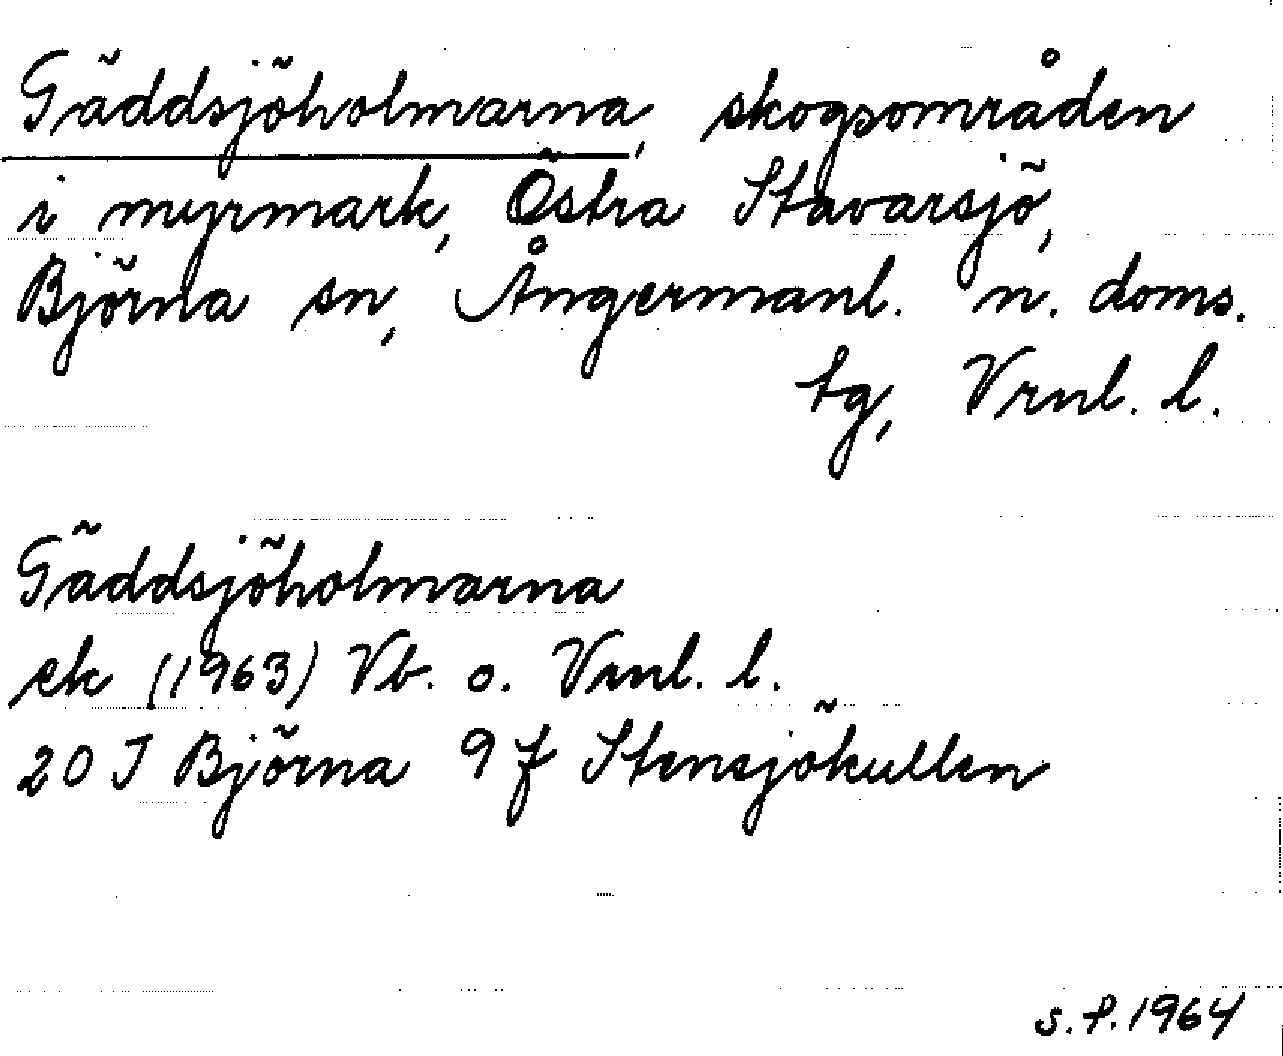 Gäddsjöholmarna, skogsområden
i myrmark, Östra Stavarsjö,
Björna sn, Ångermanl. n. doms.
tg, Vrnl. l.
Gäddsjöholmarna
ek (1963) Vb. o. Vrnl. l.
20 J Björna 9 f Stensjökullen
S.P. 1964